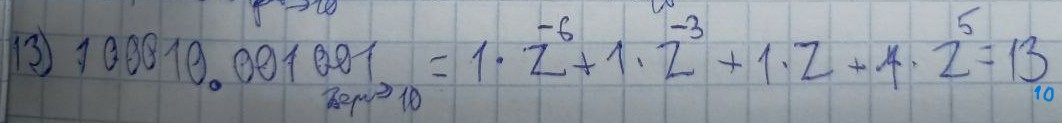 13) 100010.001001 = 1·2^-6 + 1·2^-3 + 1·2 + 1·2^5 = 13
10 10